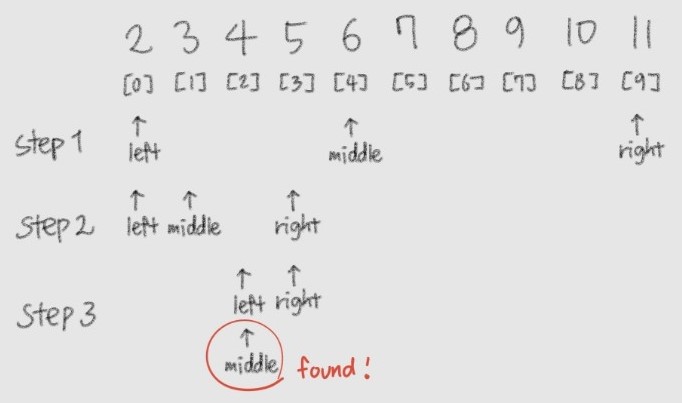 2 3 4 5 6 7 8 9 10 11
[0] [1] [2] [3] [4] [5] [6] [7] [8] [9]
Step 1
left
middle
right
Step 2
left middle
right
Step 3
left right
middle
found!